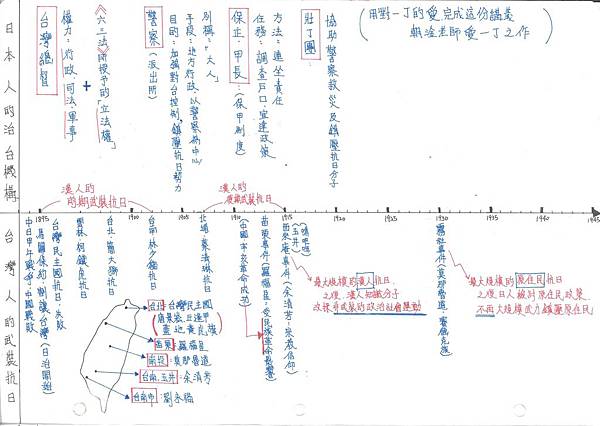 日本人的治台機構
台灣總督
權力：府政、司法、軍事
＋
《六三法》所授予的「立法權」
警察（派出所）
目的：加強對台控制、鎮壓抗日勢力
手段：地方行政，以警察為中心
別稱：「大人」
保正、甲長：（保甲制度）
任務：調查戶口、宣達政策
方法：連坐責任
壯丁團：
協助警察救災及鎮壓抗日分子
（用對一丁的愛完成這份講義
愛一丁之作）
漢人的
前期武裝抗日
漢人的
後期武裝抗日
1895
1900
1905
1910
1915
1920
1925
1930
1935
1940
1945
台灣人的武裝抗日
中日甲午戰爭：中國戰敗
馬關條約割讓台灣（日治開始）
台灣民主國抗日：失敗
雲林 柯鐵虎抗日
台北 簡大獅抗日
台南 林少貓抗日
北埔 蔡清琳抗日
（中國辛亥革命成功）
苗栗事件（羅福星：受民族革命影響）
西來庵事件（余清芳：宗教信仰）
（玉井）
（噍吧哖）
最大規模的漢人抗日
之後，漢人知識分子
改採非武裝的政治社會運動
霧社事件（莫那魯道：賽德克族）
最大規模的原住民抗日
之後日人檢討原住民政策
不再大規模武力鎮壓原住民
台灣民主國
唐景崧、丘逢甲
苗栗：羅福星
南投：莫那魯道
台南玉井：余清芳
台南市：劉永福